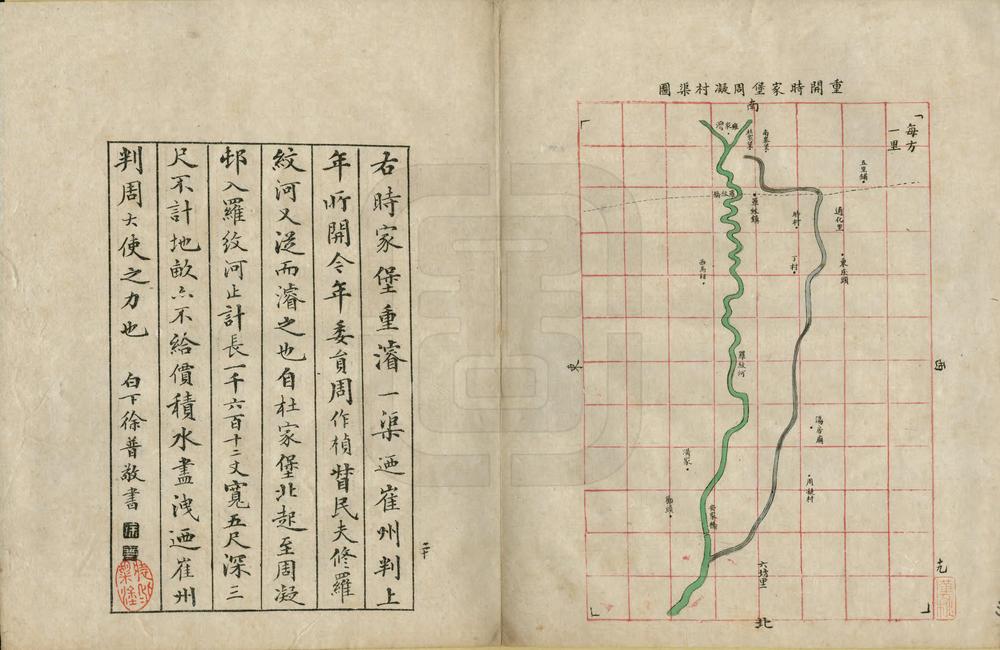 重開時家堡周凝村渠圖
南
每方
一里
五里鋪
羅紋橋
羅紋鎮
時村
通化里
丁村
東庄頭
西馬村
羅紋河
東
西
滿家
周凝村
六坊里
北
右時家堡重濬一渠迺崔州判上
年所開今年委員周作楨督民夫修羅
紋河又從而濬之也自杜家堡北起至周凝
邨入羅紋河止計長一千六百十二丈寬五尺深三
尺不計地畝亦不給價積水盡洩迺崔州
判周大使之力也 白下徐普敬書